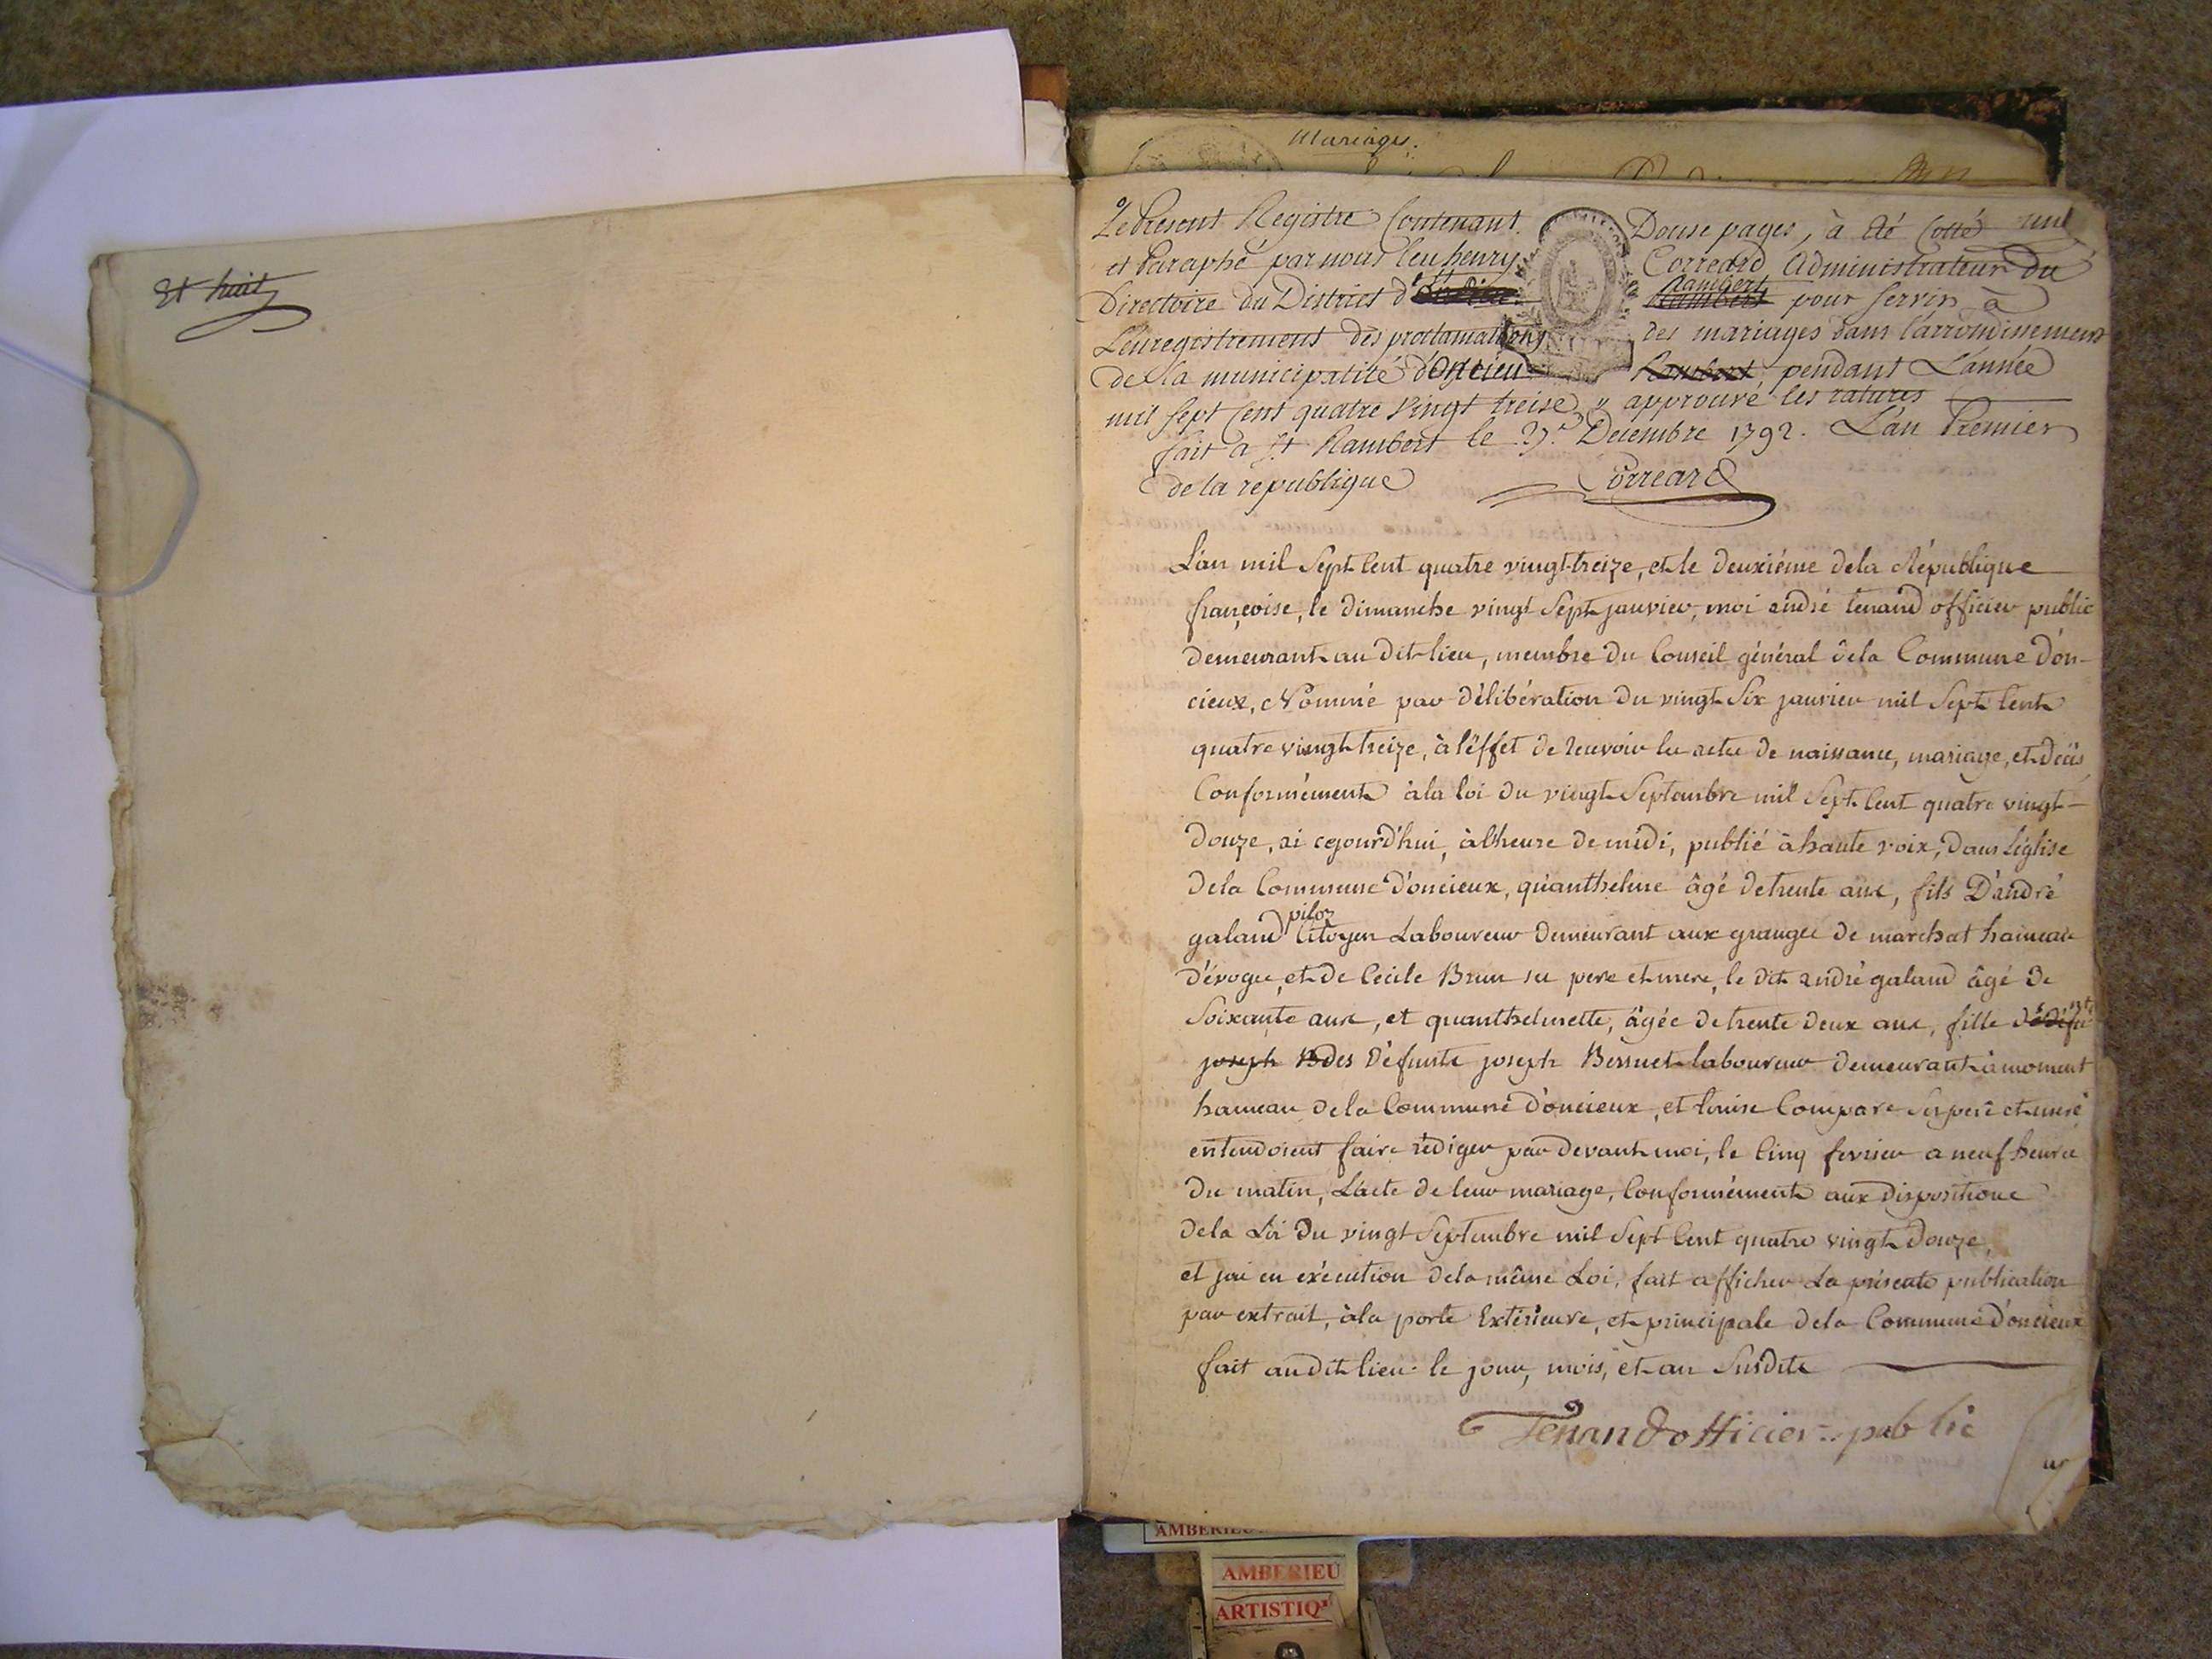 Et huit
Mariages.
Le Present Registre Contenant Douse pages, à été Cotté
et Paraphé par nous leu henry Correard Administrateur Du
Directoire du District d' St Rambert pour servir à
L'enregistrement des proclamations des mariages dans l'arrondissement
de la municipalité d'Oncieu Rambert, pendant L'année
mil sept Cent quatre Vingt treise, approuvé les ratures
fait a St Rambert le Decembre 1792. L'an Premier
de la republique Correard
L'an mil Sept Cent quatre vingt-treize, et le deuxiéme de la République
françoise, le dimanche vingt Sept janvier, moi andré tenand officier public
demeurant au dit lieu, membre du Conseil général de la Commune d'on-
cieux, Nommé par délibération du vingt Six janvier mil Sept Cent
quatre vingt treize, à l'éffet de recevoir les actes de naissance, mariage, et décès
Conformément à la loi du vingt Septembre mil Sept Cent quatre vingt-
douze, ai cejourd'hui, à l'heure de midi, publié à haute voix, dans l'église
de la Commune d'oncieux, qu'anthelme âgé de trente ans, fils D'andré
galand piloz Citoyen Laboureur demeurant aux granges de marchat hameau
d'évoges, et de Cécile Brun ses pere et mere, le dit andré galand âgé de
Soixante ans, et qu'anthelmette, âgée de trente deux ans, fille de défunt
joseph B des défunts joseph Bessuet laboureur demeurant à moment
hameau de la Commune d'oncieux, et louise Compare ses pere et mere
entendoient faire rédiger par devant moi, le Cinq fevrier a neuf heures
du matin, L'acte de leur mariage, Conformément aux dispositions
de la Loi du vingt Septembre mil Sept Cent quatre vingt douze,
et jai en exécution de la même Loi, fait afficher La présente publication
par extrait, à la porte Extérieure, et principale de la Commune d'oncieux
fait audit lieu le jour, mois, et an Susdits
Tenand officier public
AMBERIEU
ARTISTIQ